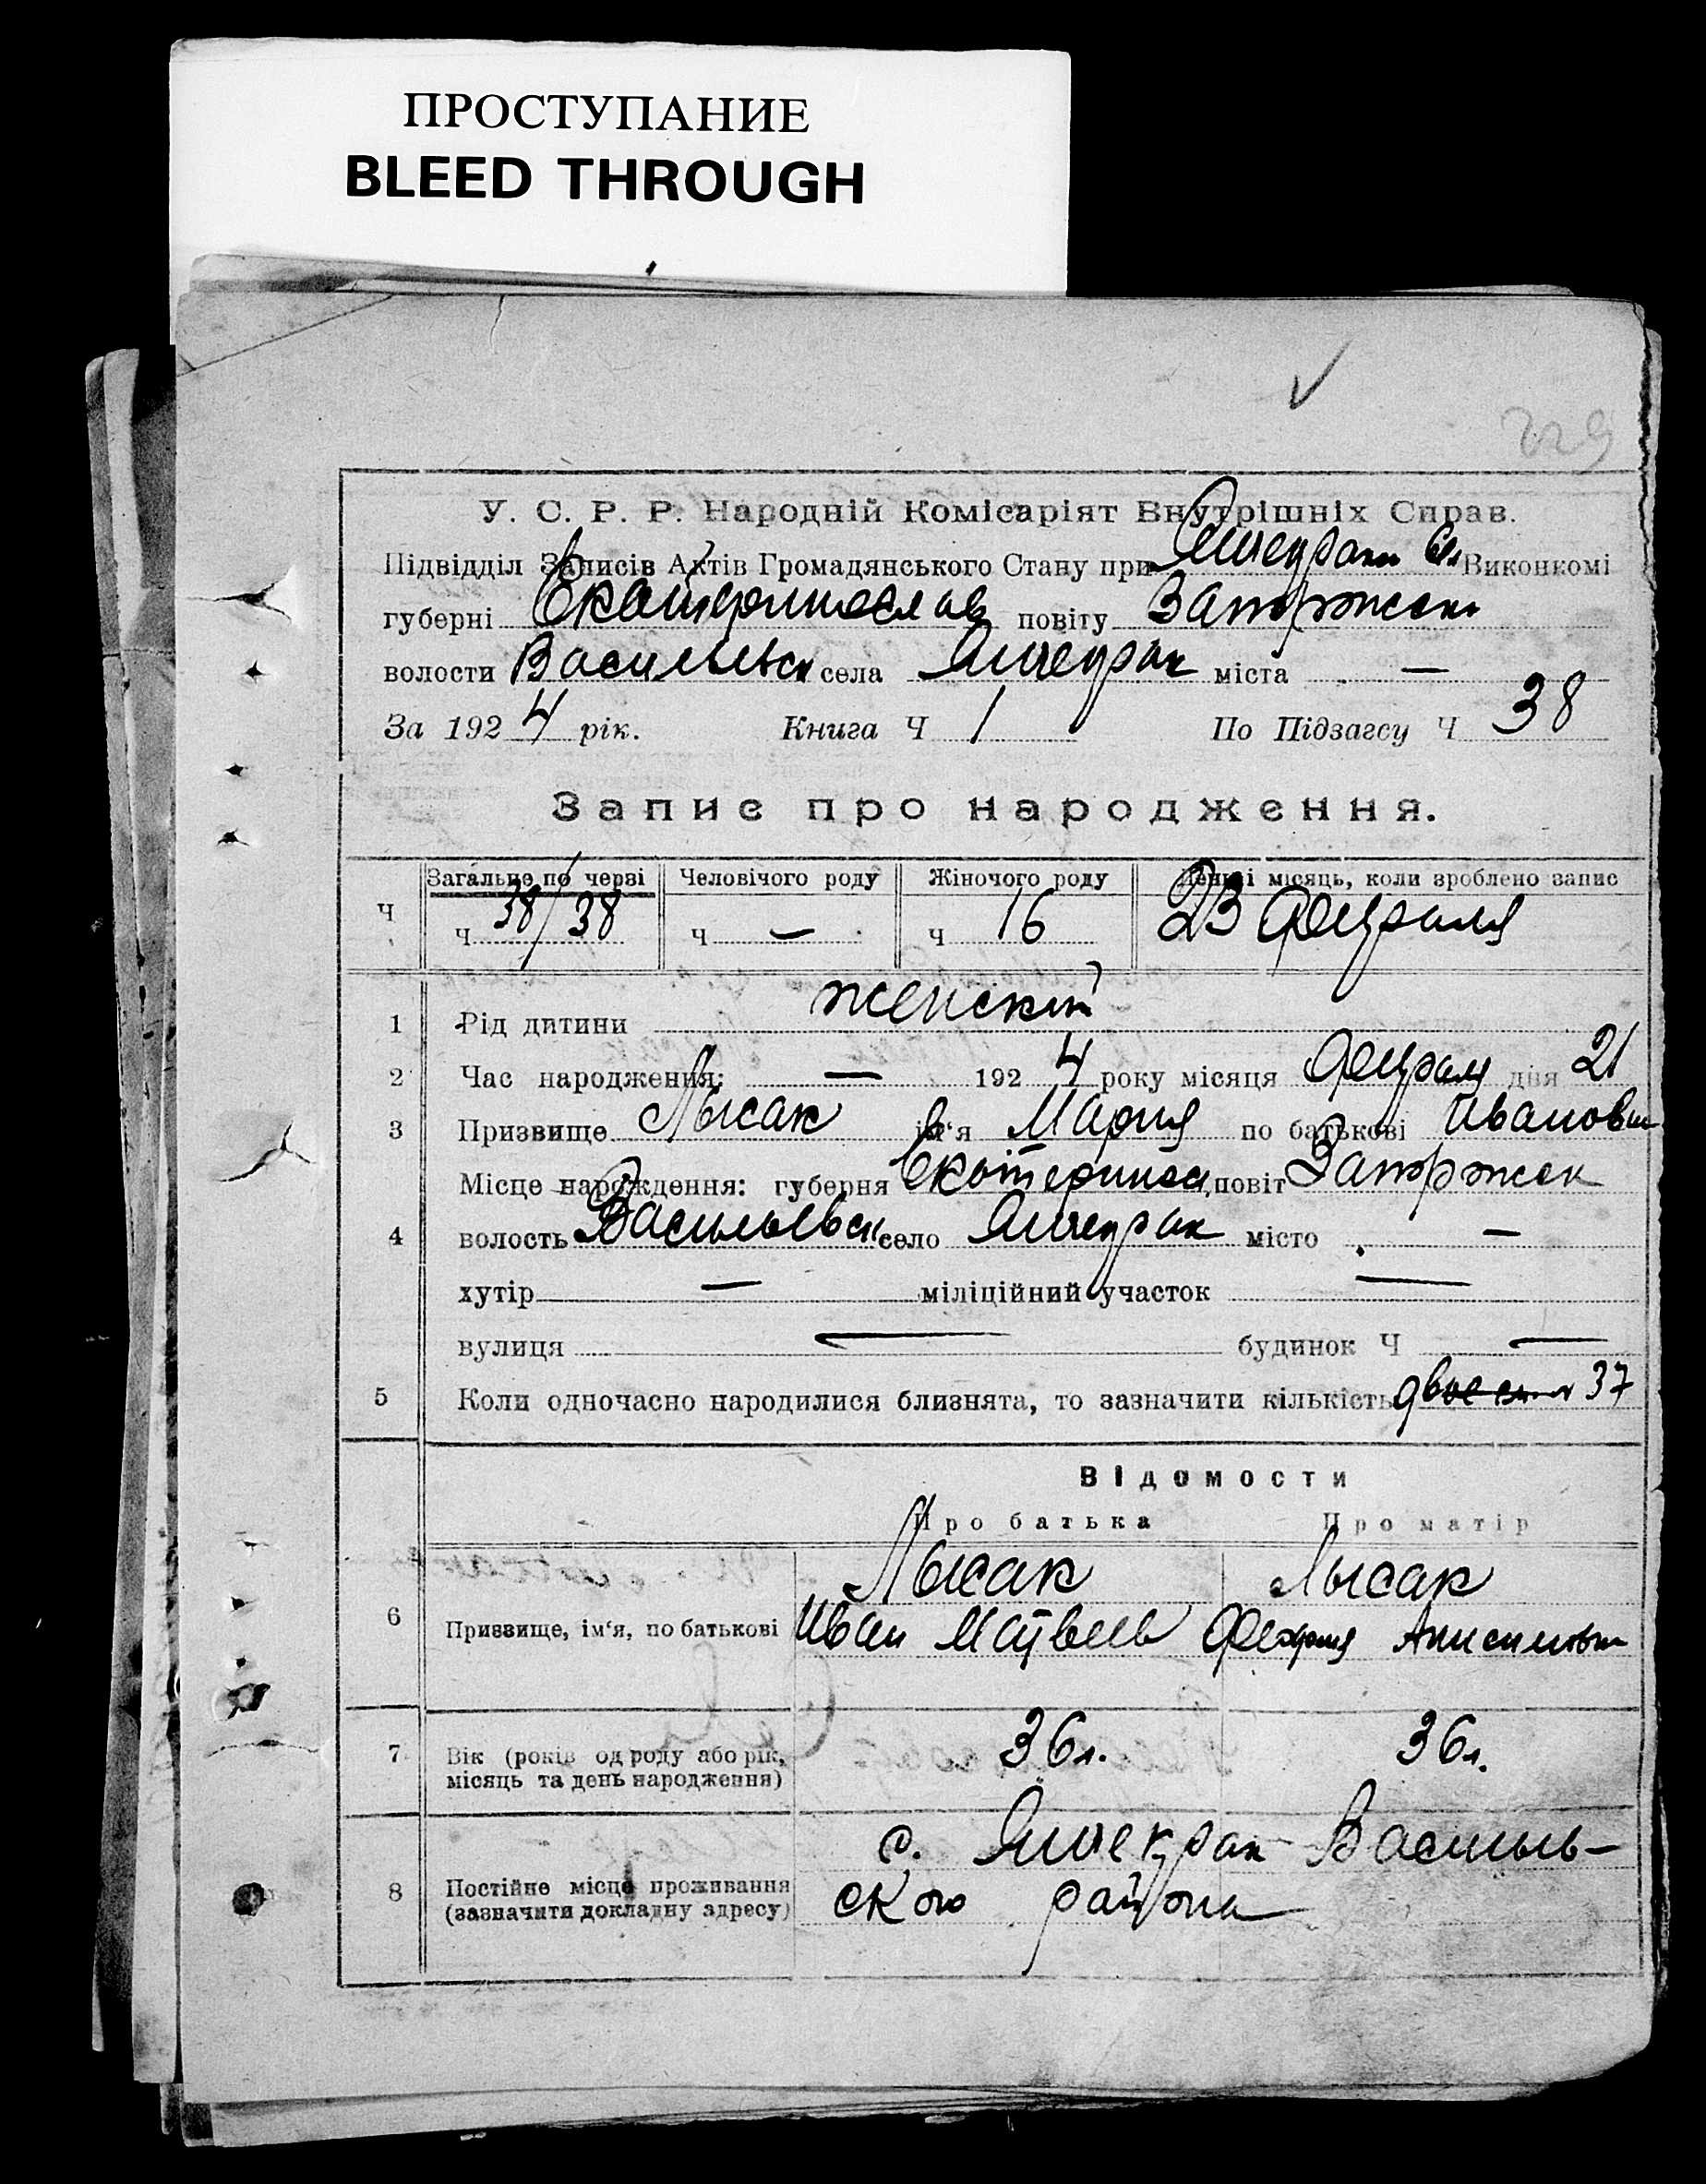 ПРОСТУПАНИЕ
BLEED THROUGH
229
У. С. Р. Р. Народній Комісаріят Внутрішніх Справ.
Підвідділ Записів Актів Громадянського Стану при Янчекрак Виконкомі
губерні Екатеринослав повіту Запорожск
волости Васильевск села Янчекрак міста —
За 1924 рік. Книга Ч 1 По Підзагсу Ч 38
Запис про народження.
Загальне по черві Человічого роду Жіночого роду День і місяць, коли зроблено запис
Ч ч 38/38 ч — ч 16 23 февраля
1 Рід дитини женский
2 Час народження: — 1924 року місяця февраля дня 21
3 Призвище Лысак ім‘я Мария по батькові Ивановн
Місце народження: губерня Екатеринос повіт Запорожск
4 волость Васильевск село Янчекрак місто —
хутір — міліційний участок —
вулиця — будинок Ч —
5 Коли одночасно народилися близнята, то зазначити кількість двое 37
Відомости
Про батька Про матір
Лысак Лысак
6 Призвище, ім‘я, по батькові Иван Матвеев Анисимовн
7 Вік (років од роду або рік, 36 л. 36 л.
місяць та день народження)
с. Янчекрак Василь-
8 Постійне місце проживання ского района
(зазначити докладну адресу)